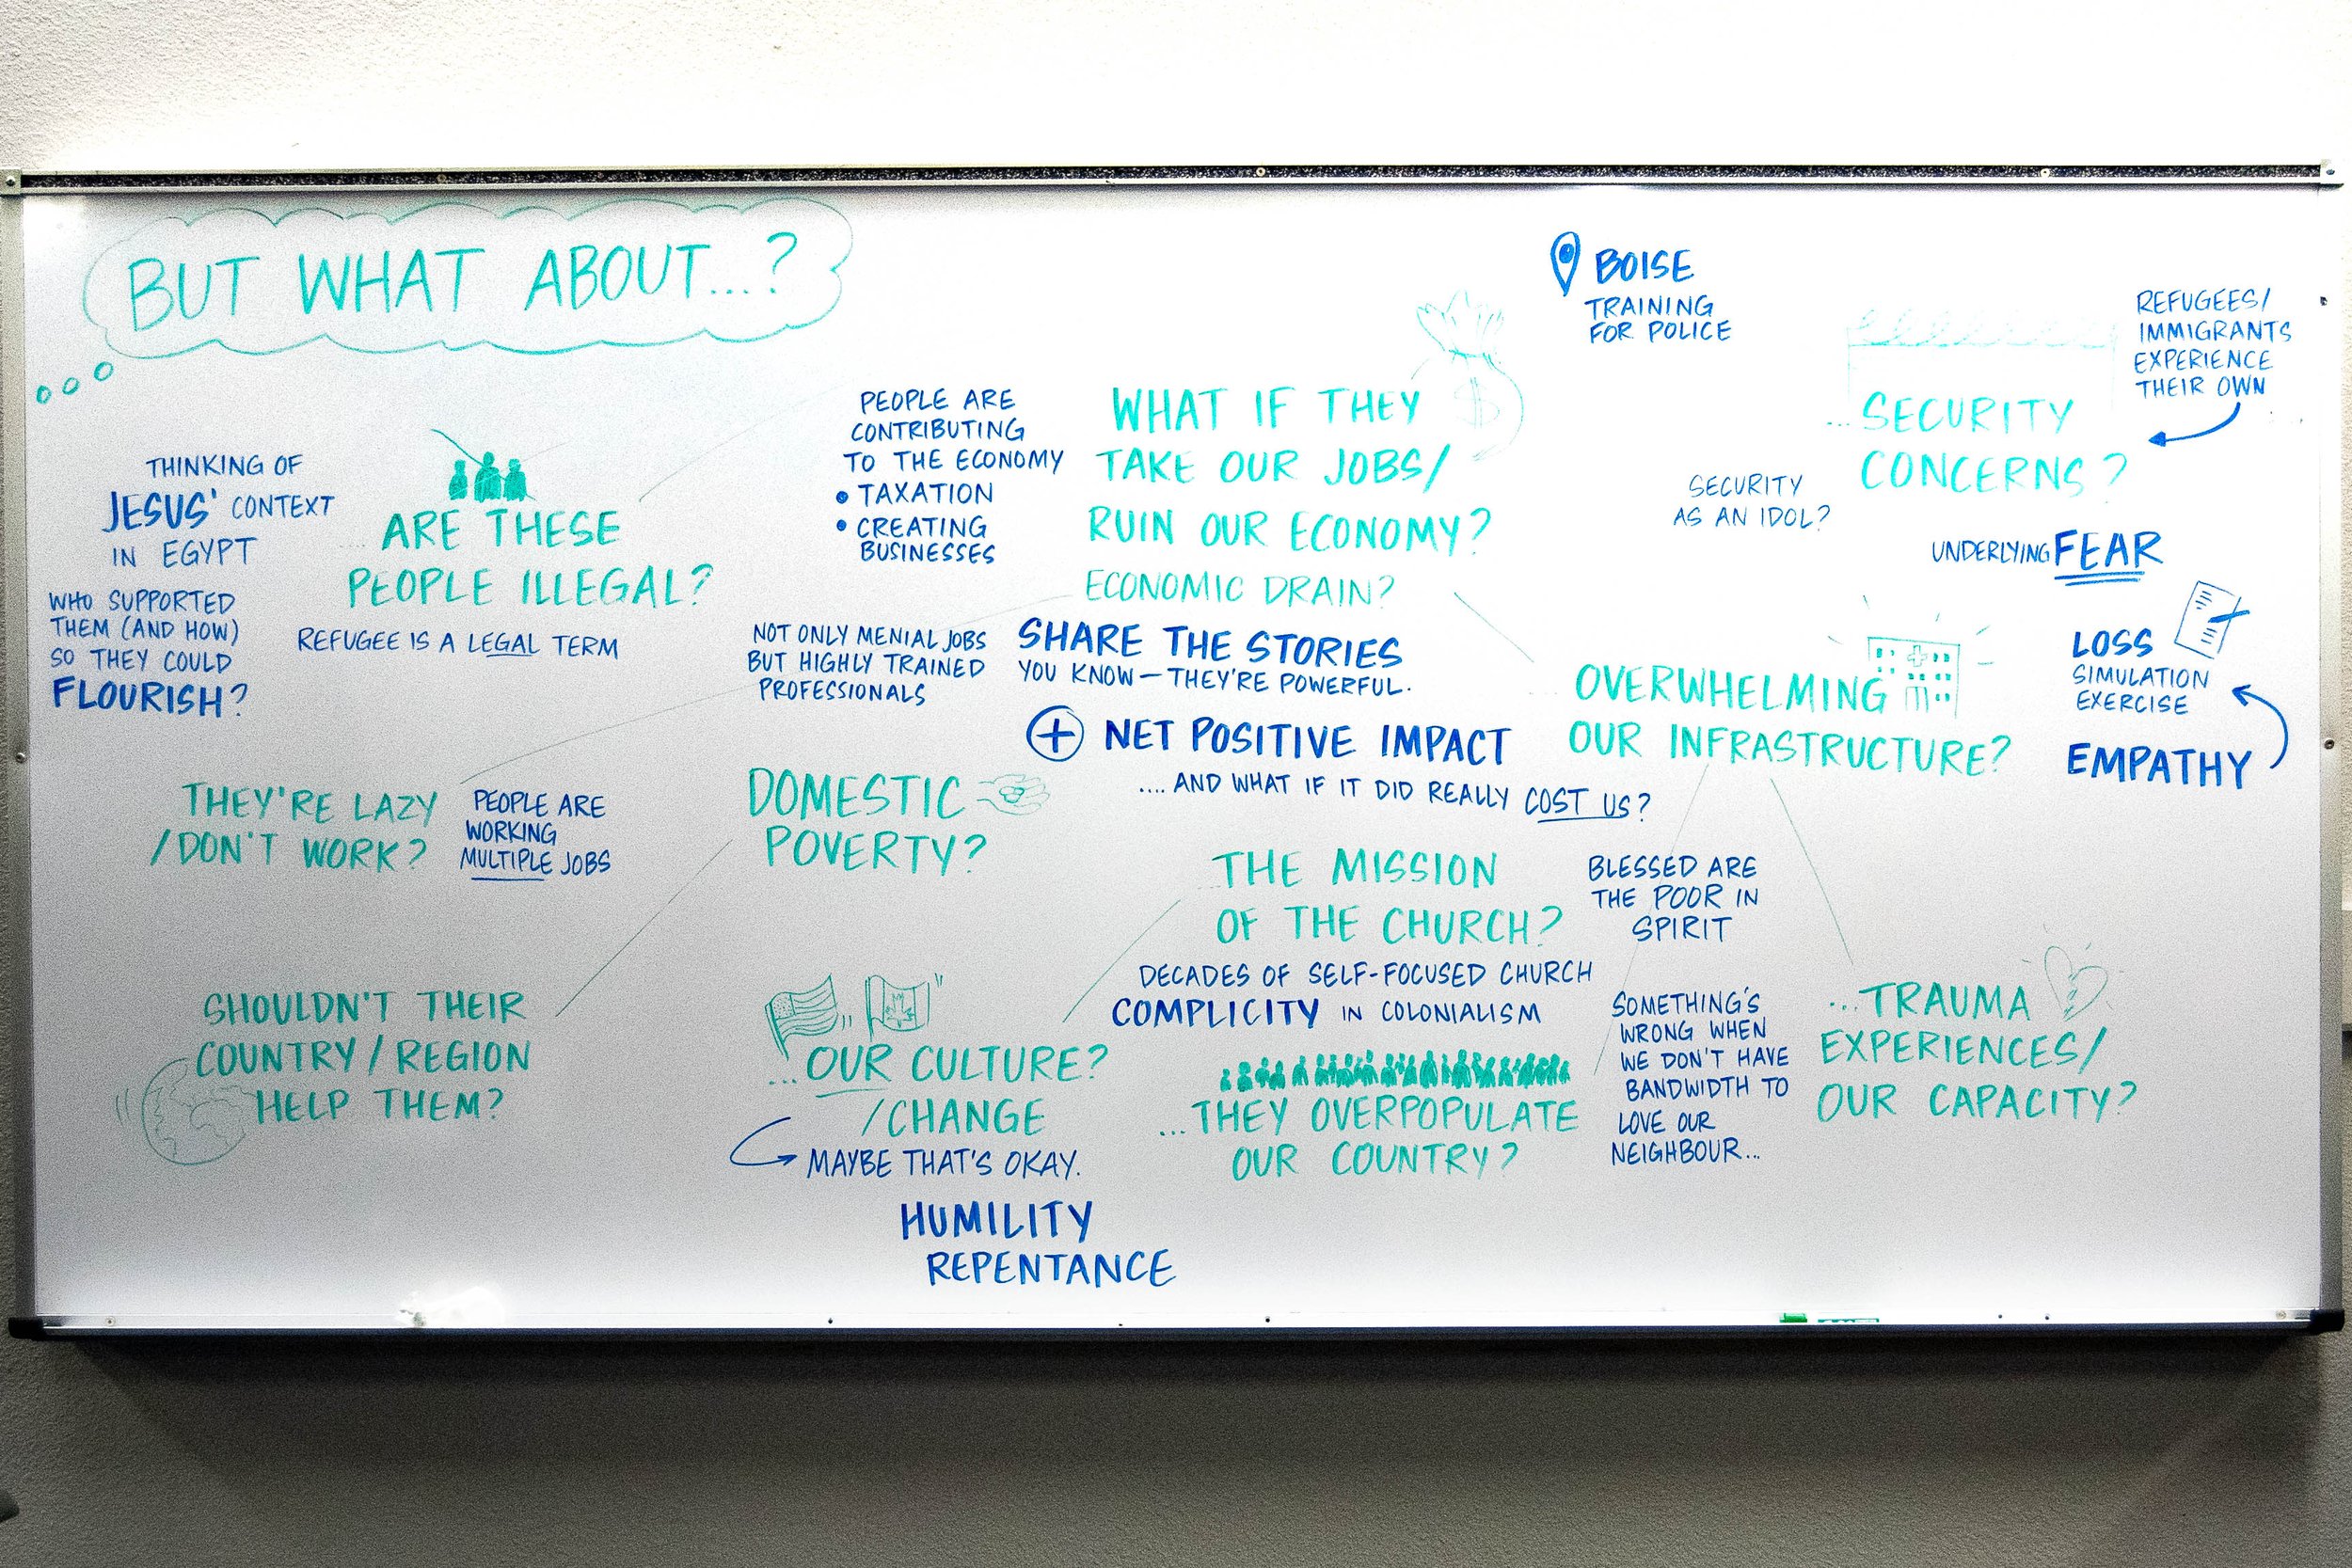 BUT WHAT ABOUT...?
THINKING OF
JESUS' CONTEXT
IN EGYPT
WHO SUPPORTED
THEM (AND HOW)
SO THEY COULD
FLOURISH?
... ARE THESE
PEOPLE ILLEGAL?
REFUGEE IS A LEGAL TERM
PEOPLE ARE
CONTRIBUTING
TO THE ECONOMY
• TAXATION
• CREATING
BUSINESSES
WHAT IF THEY
TAKE OUR JOBS/
RUIN OUR ECONOMY?
ECONOMIC DRAIN?
$
NOT ONLY MENIAL JOBS
BUT HIGHLY TRAINED
PROFESSIONALS
SHARE THE STORIES
YOU KNOW — THEY'RE POWERFUL.
+ NET POSITIVE IMPACT
.... AND WHAT IF IT DID REALLY COST US?
BOISE
TRAINING
FOR POLICE
REFUGEES/
IMMIGRANTS
EXPERIENCE
THEIR OWN
... SECURITY
CONCERNS?
SECURITY
AS AN IDOL?
UNDERLYING FEAR
... OVERWHELMING
OUR INFRASTRUCTURE?
LOSS
SIMULATION
EXERCISE
EMPATHY
THEY'RE LAZY
/DON'T WORK?
PEOPLE ARE
WORKING
MULTIPLE JOBS
DOMESTIC
POVERTY?
... THE MISSION
OF THE CHURCH?
DECADES OF SELF-FOCUSED CHURCH
COMPLICITY IN COLONIALISM
BLESSED ARE
THE POOR IN
SPIRIT
SHOULDN'T THEIR
COUNTRY/REGION
HELP THEM?
...OUR CULTURE?
/CHANGE
MAYBE THAT'S OKAY.
HUMILITY
REPENTANCE
...THEY OVERPOPULATE
OUR COUNTRY?
SOMETHING'S
WRONG WHEN
WE DON'T HAVE
BANDWIDTH TO
LOVE OUR
NEIGHBOUR...
...TRAUMA
EXPERIENCES/
OUR CAPACITY?